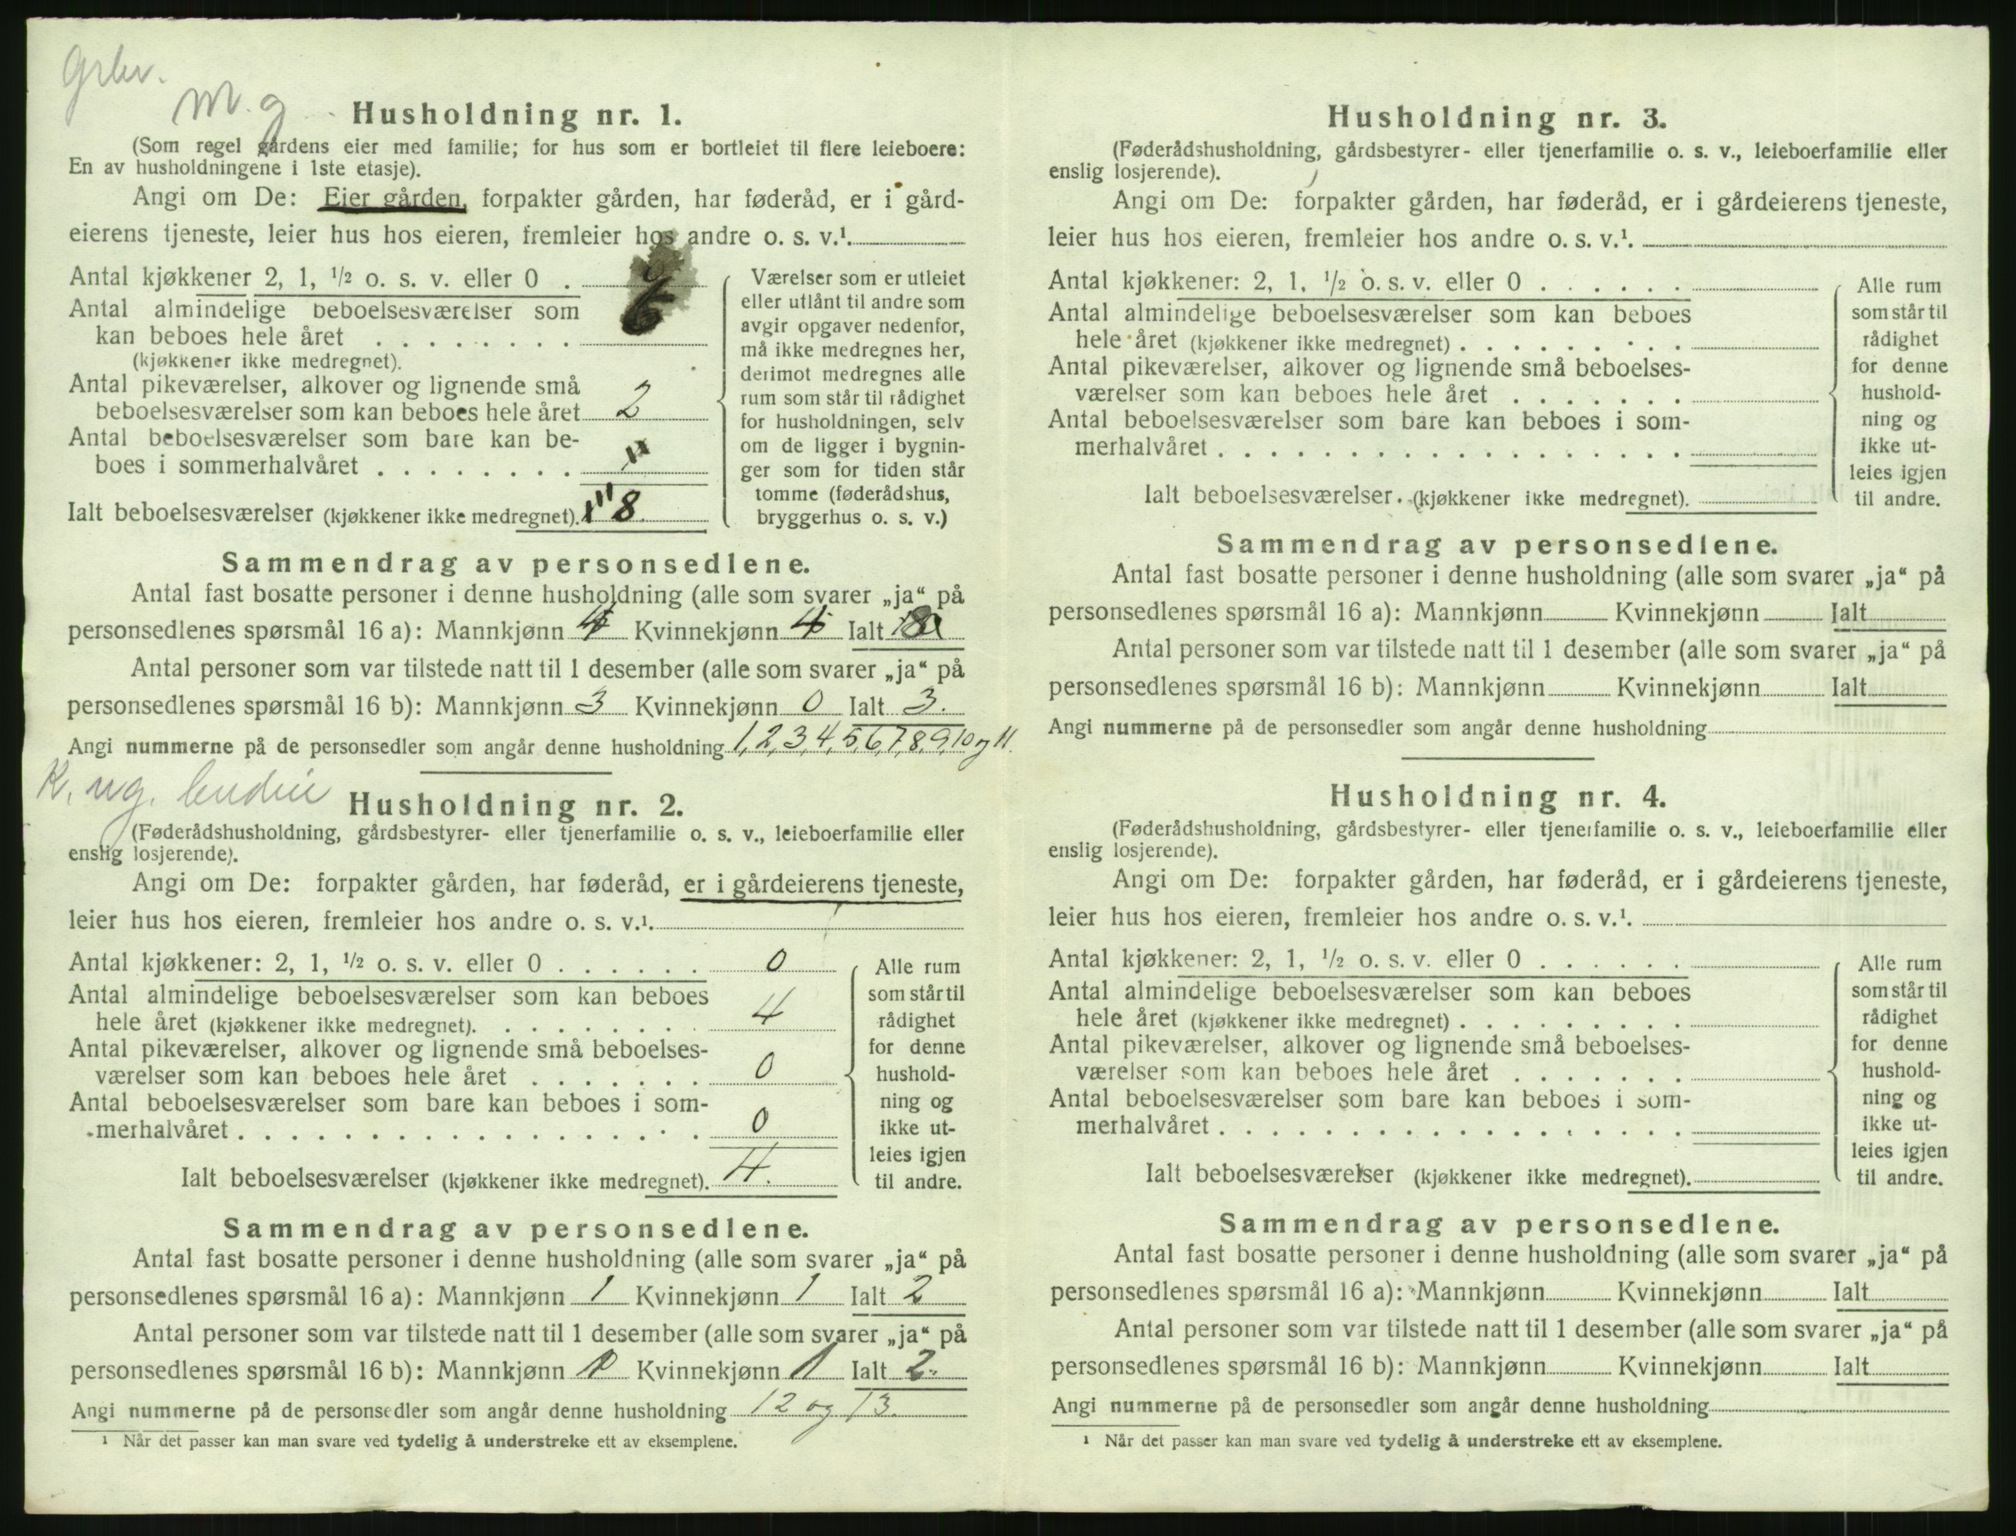 Grbr.
M. g
Husholdning nr. 1.
(Som regel gårdens eier med familie; for hus som er bortleiet til flere leieboere:
En av husholdningene i 1ste etasje).
Angi om De: Eier gården, forpakter gården, har føderåd, er i gård-
eierens tjeneste, leier hus hos eieren, fremleier hos andre o. s. v.¹.
Antal kjøkkener 2, 1, ½ o. s. v. eller 0 .
Antal almindelige beboelsesværelser som
kan beboes hele året . . . . . . . . 6
(kjøkkener ikke medregnet).
Antal pikeværelser, alkover og lignende små
beboelsesværelser som kan beboes hele året 2
Antal beboelsesværelser som bare kan be-
boes i sommerhalvåret . . . . . . . .
Ialt beboelsesværelser (kjøkkener ikke medregnet). 8.
Værelser som er utleiet
eller utlånt til andre som
avgir opgaver nedenfor,
må ikke medregnes her,
derimot medregnes alle
rum som står til rådighet
for husholdningen, selv
om de ligger i bygnin-
ger som for tiden står
tomme (føderådshus,
bryggerhus o. s. v.)
Sammendrag av personsedlene.
Antal fast bosatte personer i denne husholdning (alle som svarer „ja“ på
personsedlenes spørsmål 16 a): Mannkjønn 4 Kvinnekjønn 4 Ialt 8
Antal personer som var tilstede natt til 1 desember (alle som svarer „ja“ på
personsedlenes spørsmål 16 b): Mannkjønn 3 Kvinnekjønn 0 Ialt 3.
Angi nummerne på de personsedler som angår denne husholdning 1,2,3,4,5,6,7,8,9,10 og 11.
K. ug.
Husholdning nr. 2.
(Føderådshusholdning, gårdsbestyrer- eller tjenerfamilie o. s. v., leieboerfamilie eller
enslig losjerende).
Angi om De: forpakter gården, har føderåd, er i gårdeierens tjeneste,
leier hus hos eieren, fremleier hos andre o. s. v.¹.
Antal kjøkkener: 2, 1, ½ o. s. v. eller 0 . . . . . . 0
Antal almindelige beboelsesværelser som kan beboes
hele året (kjøkkener ikke medregnet). . . . . . . . . 4
Antal pikeværelser, alkover og lignende små beboelses-
værelser som kan beboes hele året . . . . . . . 0
Antal beboelsesværelser som bare kan beboes i som-
merhalvåret . . . . . . . . . . . . . . . . . . 0
Ialt beboelsesværelser (kjøkkener ikke medregnet). 4.
Alle rum
som står til
rådighet
for denne
hushold-
ning og
ikke ut-
leies igjen
til andre.
Sammendrag av personsedlene.
Antal fast bosatte personer i denne husholdning (alle som svarer „ja“ på
personsedlenes spørsmål 16 a): Mannkjønn 1 Kvinnekjønn 1 Ialt 2
Antal personer som var tilstede natt til 1 desember (alle som svarer „ja“ på
personsedlenes spørsmål 16 b): Mannkjønn 1 Kvinnekjønn 1 Ialt 2.
Angi nummerne på de personsedler som angår denne husholdning 12 og 13.
¹ Når det passer kan man svare ved tydelig å understreke ett av eksemplene.
Husholdning nr. 3.
(Føderådshusholdning, gårdsbestyrer- eller tjenerfamilie o. s. v., leieboerfamilie eller
enslig losjerende).
Angi om De: forpakter gården, har føderåd, er i gårdeierens tjeneste,
leier hus hos eieren, fremleier hos andre o. s. v.¹.
Antal kjøkkener: 2, 1, ½ o. s. v. eller 0 . . . . . .
Antal almindelige beboelsesværelser som kan beboes
hele året (kjøkkener ikke medregnet) . . . . . . . . .
Antal pikeværelser, alkover og lignende små beboelses-
værelser som kan beboes hele året . . . . . . .
Antal beboelsesværelser som bare kan beboes i som-
merhalvåret . . . . . . . . . . . . . . . . . .
Ialt beboelsesværelser. (kjøkkener ikke medregnet).
Alle rum
som står til
rådighet
for denne
hushold-
ning og
ikke ut-
leies igjen
til andre.
Sammendrag av personsedlene.
Antal fast bosatte personer i denne husholdning (alle som svarer „ja“ på
personsedlenes spørsmål 16 a): Mannkjønn Kvinnekjønn Ialt
Antal personer som var tilstede natt til 1 desember (alle som svarer „ja“ på
personsedlenes spørsmål 16 b): Mannkjønn Kvinnekjønn Ialt
Angi nummerne på de personsedler som angår denne husholdning
Husholdning nr. 4.
(Føderådshusholdning, gårdsbestyrer- eller tjenerfamilie o. s. v., leieboerfamilie eller
enslig losjerende).
Angi om De: forpakter gården, har føderåd, er i gårdeierens tjeneste,
leier hus hos eieren, fremleier hos andre o. s. v.¹.
Antal kjøkkener: 2, 1, ½ o. s. v. eller 0 . . . . . .
Antal almindelige beboelsesværelser som kan beboes
hele året (kjøkkener ikke medregnet) . . . . . . . . .
Antal pikeværelser, alkover og lignende små beboelses-
værelser som kan beboes hele året . . . . . . .
Antal beboelsesværelser som bare kan beboes i som-
merhalvåret . . . . . . . . . . . . . . . . . .
Ialt beboelsesværelser (kjøkkener ikke medregnet).
Alle rum
som står til
rådighet
for denne
hushold-
ning og
ikke ut-
leies igjen
til andre.
Sammendrag av personsedlene.
Antal fast bosatte personer i denne husholdning (alle som svarer „ja“ på
personsedlenes spørsmål 16 a): Mannkjønn Kvinnekjønn Ialt
Antal personer som var tilstede natt til 1 desember (alle som svarer „ja“ på
personsedlenes spørsmål 16 b): Mannkjønn Kvinnekjønn Ialt
Angi nummerne på de personsedler som angår denne husholdning
¹ Når det passer kan man svare ved tydelig å understreke ett av eksemplene.